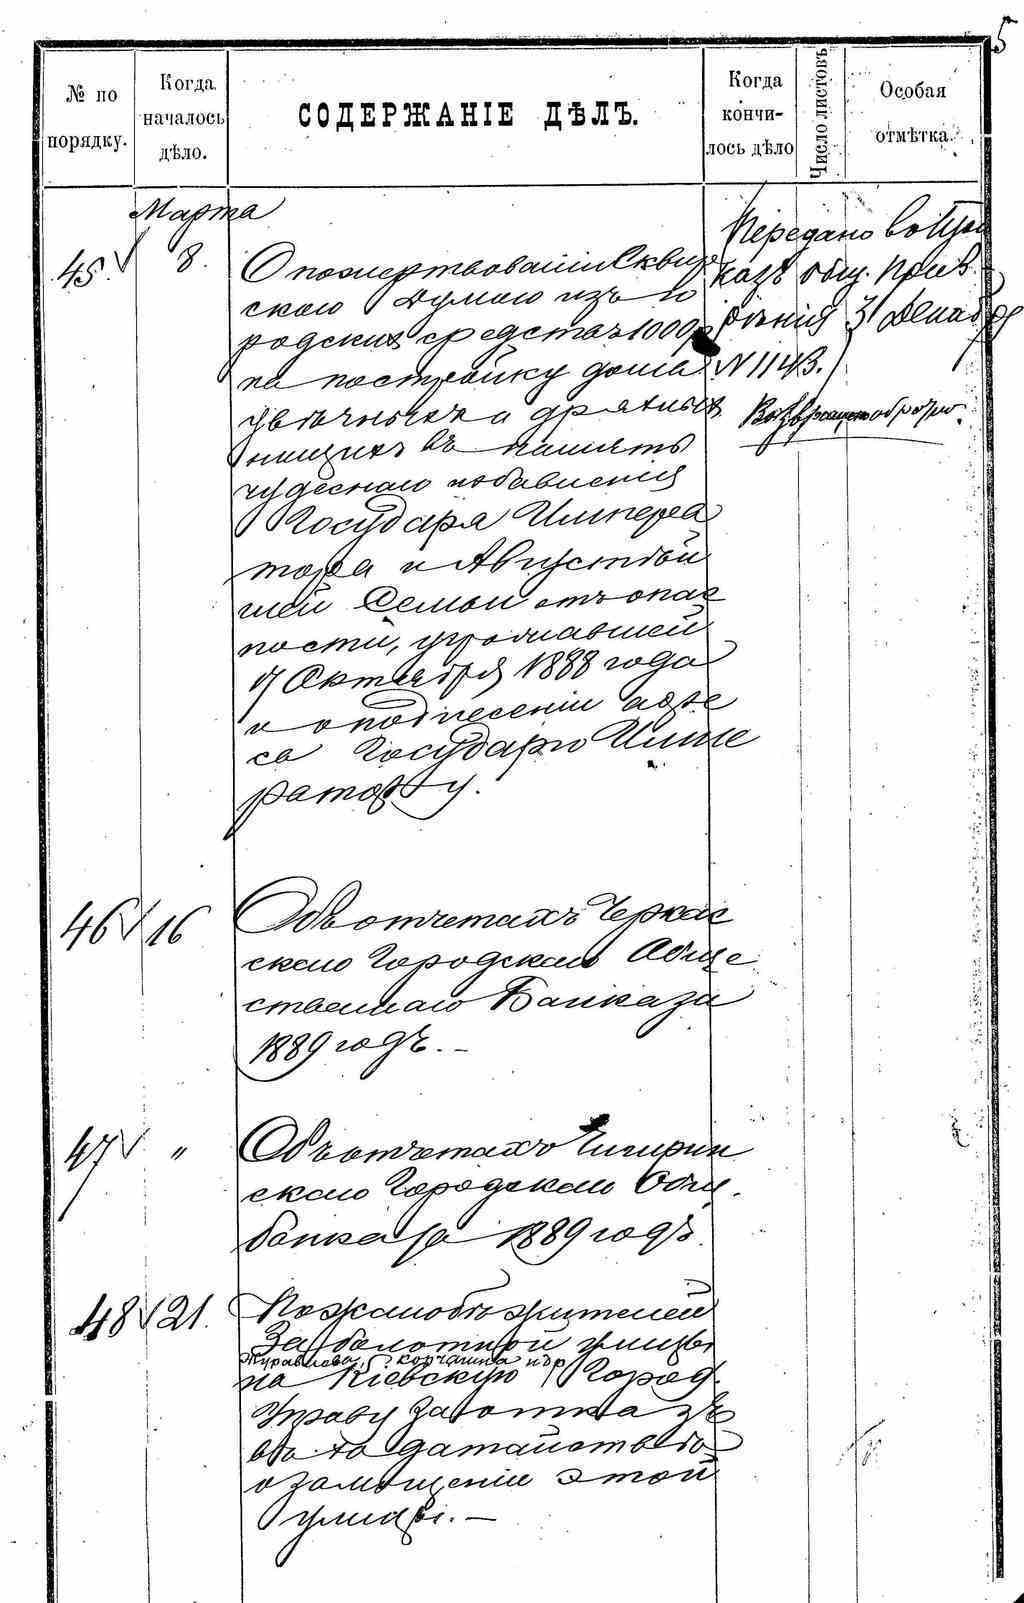 5
№ по порядку.
Когда началось дѣло.
СОДЕРЖАНІЕ ДѢЛЪ.
Когда кончилось дѣло
Число листовъ
Особая отмѣтка.
Марта
45 8.
О пожертвованіи Сквир
скою Думою изъ го
родских средствъ 1000 р
на постройку дома
увѣчныхъ и дряхлых
нищихъ въ память
чудеснаго избавленія
Государя Импера
тора и Августѣй
шей Семьи отъ опас
ности, угрожавшей
17 Октября 1888 года
и о поднесеніи адре
са Государю Импе
ратору.
Передано въ При
казъ общ. Призр
рѣнія 31 Декабря
N 1143.
46 16
Объ отчетахъ Черкас
скаго Городскаго Обще
ственнаго Банка за
1889 годъ. –
47 "
Объ отчетахъ Чигирин
скаго Городскаго Общ.
банка за 1889 годъ.
48 21.
По жалобѣ жителей
Заболотной улицы
Журавлева, Корчагина и др
на Кіевскую Город.
Управу за отказъ
въ ходатайствѣ
о замощеніи этой
улицы. –